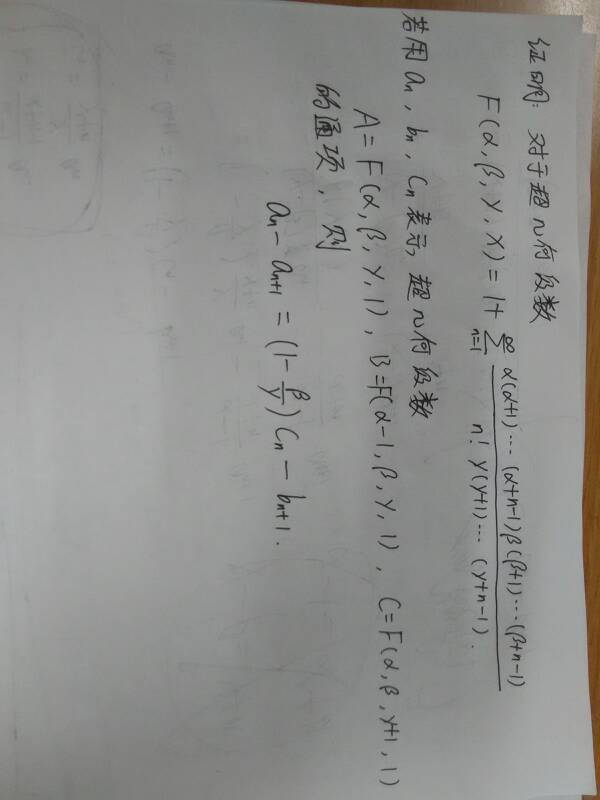 证明: 对于超几何级数
F(α, β, γ, x) = 1 + ∑_{n=1}^{∞} \frac{α(α+1)⋯(α+n-1)β(β+1)⋯(β+n-1)}{n! γ(γ+1)⋯(γ+n-1)}.
若用 a_n, b_n, C_n 表示 超几何级数
A = F(α, β, γ, 1), B = F(α-1, β, γ, 1), C = F(α, β, γ+1, 1)
的通项, 则
a_n - a_{n+1} = (1 - \frac{β}{γ}) C_n - b_{n+1}.